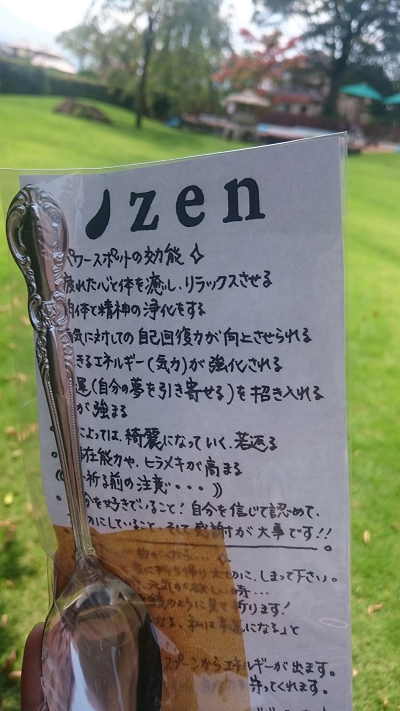 zen
パワースポットの効能✧
疲れた心と体を癒し、リラックスさせる
体と精神の浄化をする
気に対しての自己回復力が向上させられる
きるエネルギー(気力)が強化される
運(自分の夢を引き寄せる)を招き入れる
が強まる
によっては、綺麗になっていく、若返る
在能力や、ヒラメキが高まる
祈る前の注意・・・))
分を好きでいること!自分を信じて認めて、
にしていること、そして感謝が大事です!!
しまって下さい。
元気が欲しい時…
のように見て祈ります!
なる、私は幸運になる」と
スプーンからエネルギーが出ます。
守ってくれます。